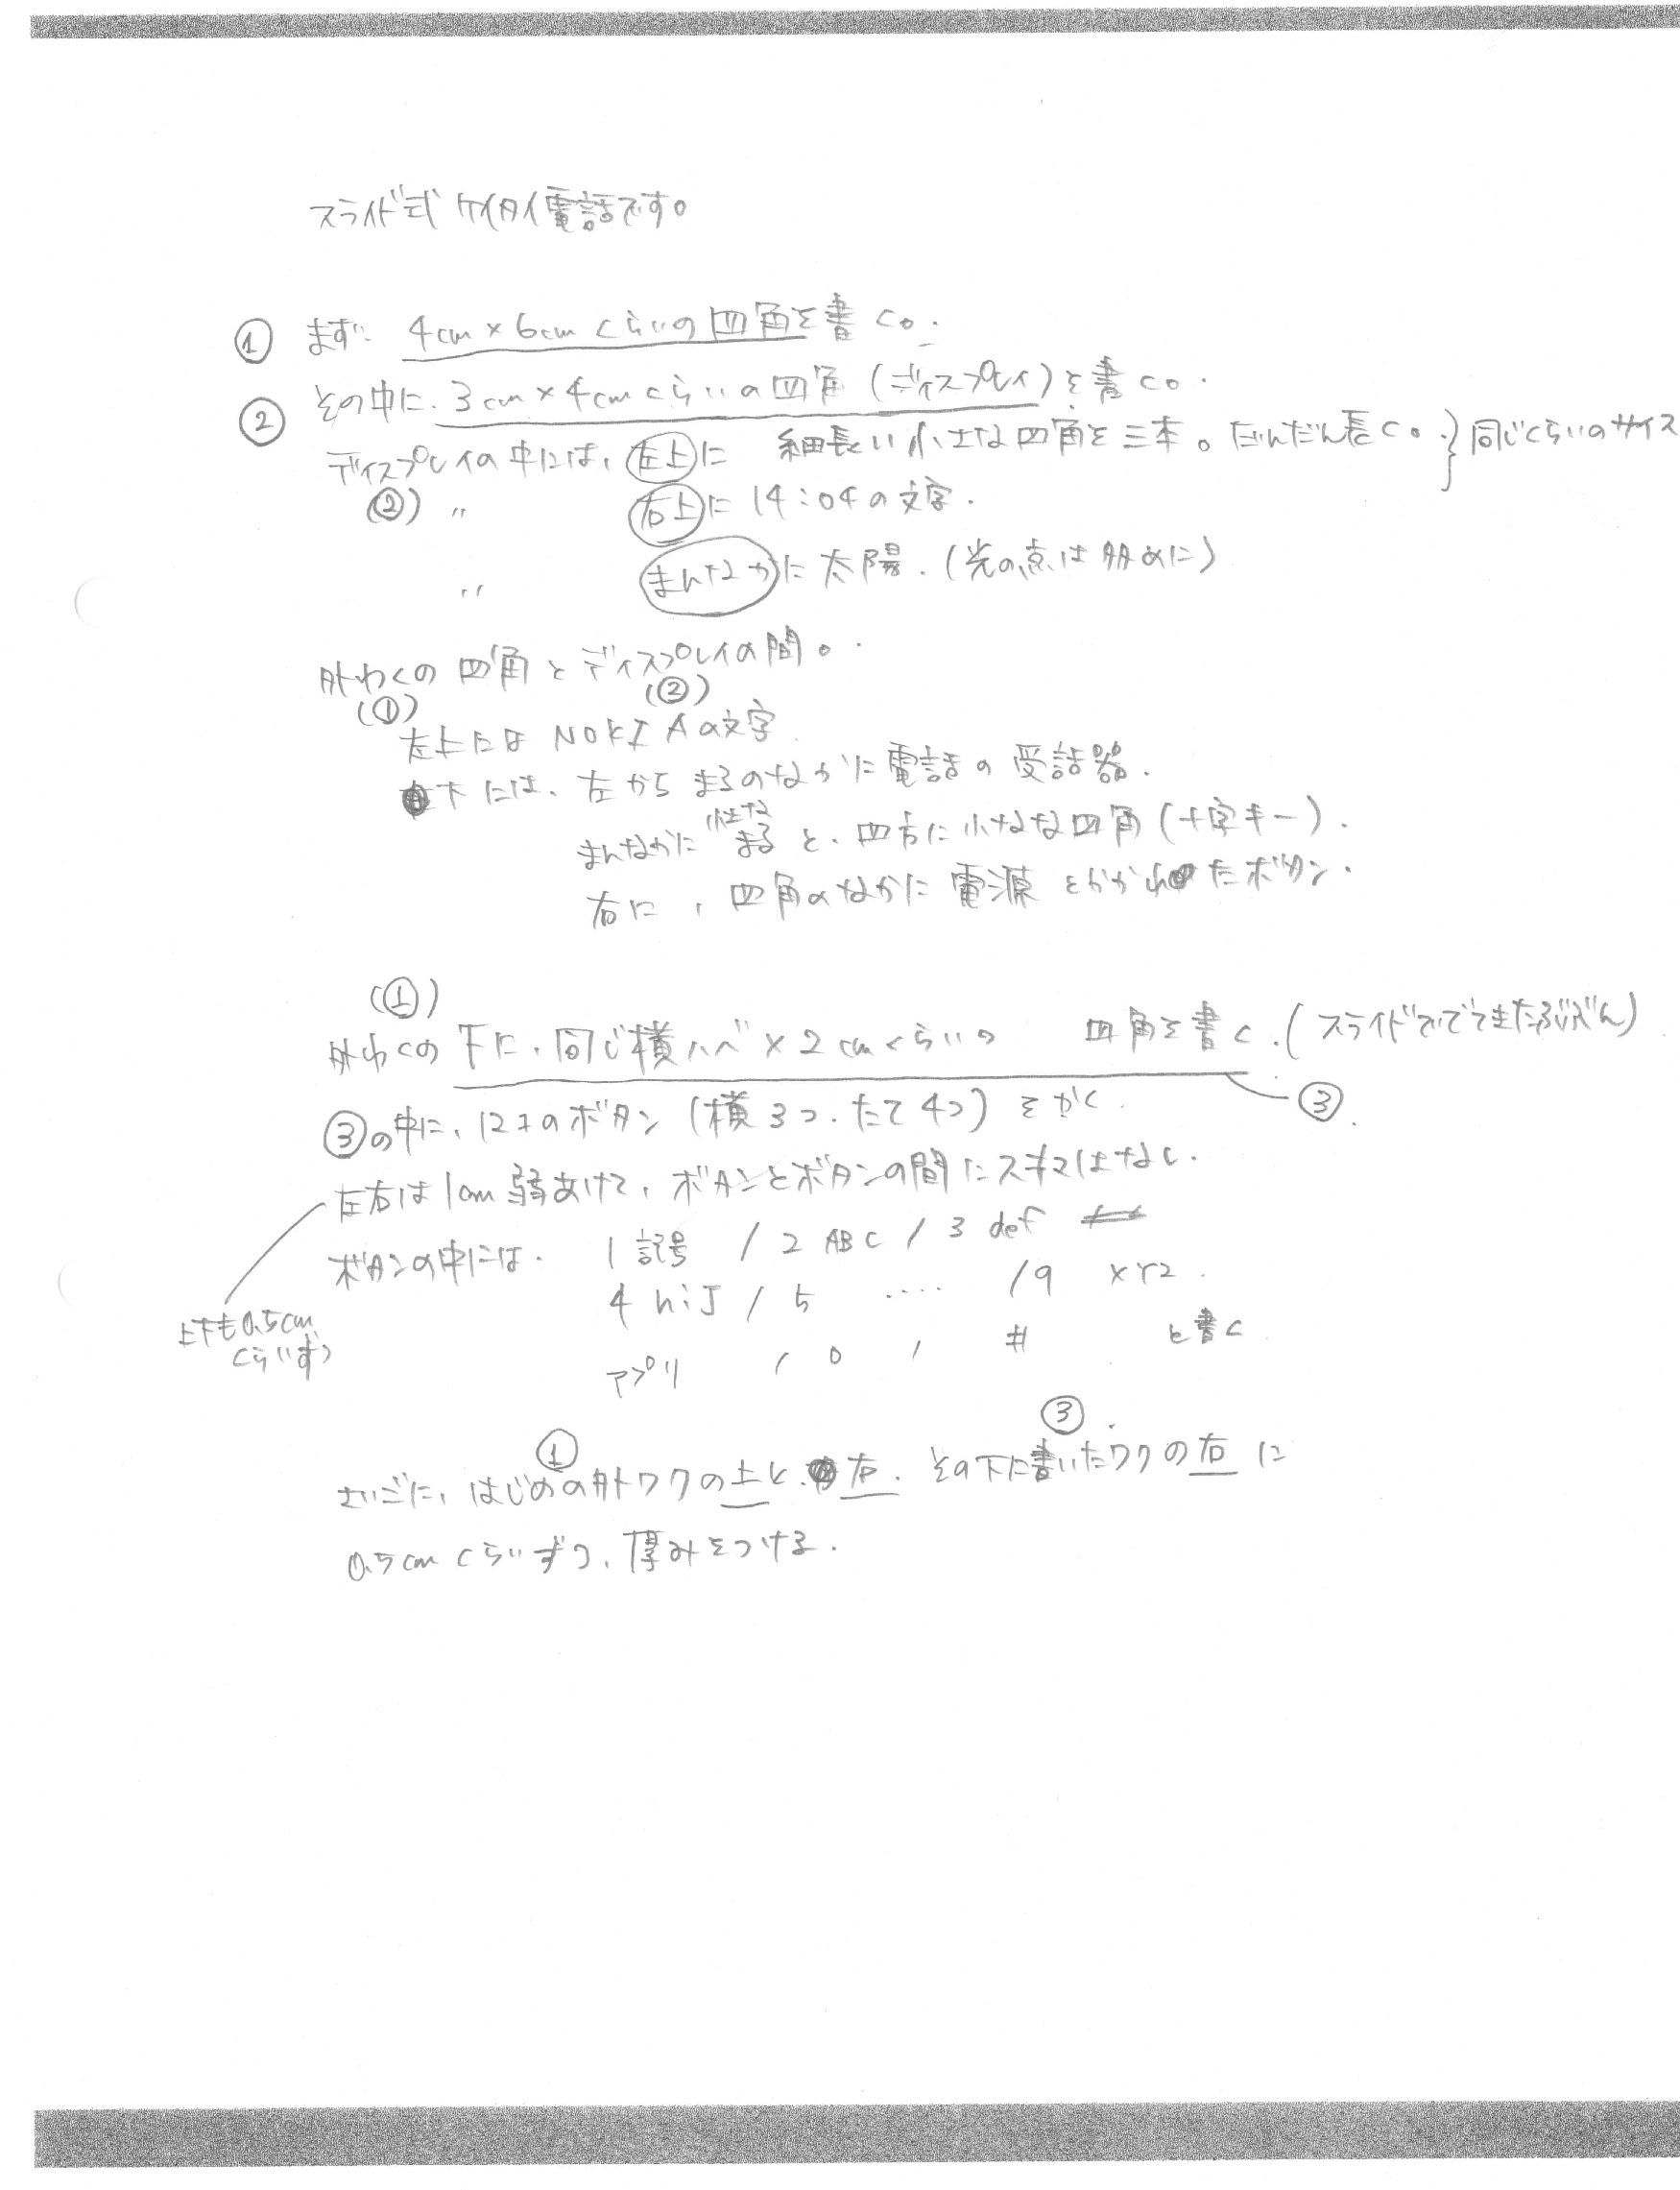 スライド式ケイタイ電話です。
① まず、4cm×6cmくらいの四角を書く。
② その中に、3cm×4cmくらいの四角(ディスプレイ)を書く。
ディスプレイの中には、左上に 細長い小さな四角を三本。だんだん長く。} 同じくらいのサイズ
(②) 〃 右上に 14:04の文字.
〃 まんなかに太陽.(光の点は多めに)
外わくの四角とディスプレイの間。
(①) (②)
左上には NOKIAの文字.
下には、左から まるのなかに電話の受話器.
まんなかに 小さな まると、四方に小さな四角(十字キー).
右に、四角のなかに電源とかかれたボタン.
(①)
外わくの下に、同じ横ハバ×2cmくらいの 四角を書く.(スライドででてきたぶぶん)
③
③の中に、12コのボタン(横3つ.たて4つ)をかく.
左右は1cm弱あけて、ボタンとボタンの間にスキマはなし.
上下も0.5cmくらいずつ
ボタンの中には. 1 記号 / 2 ABC / 3 def
4 hiJ / 5 .... /9 xYz.
アプリ / 0 / # と書く
① ③
さいごに、はじめの外ワクの上と、右. その下に書いたワクの右に
0.5cmくらいずつ、厚みをつける.